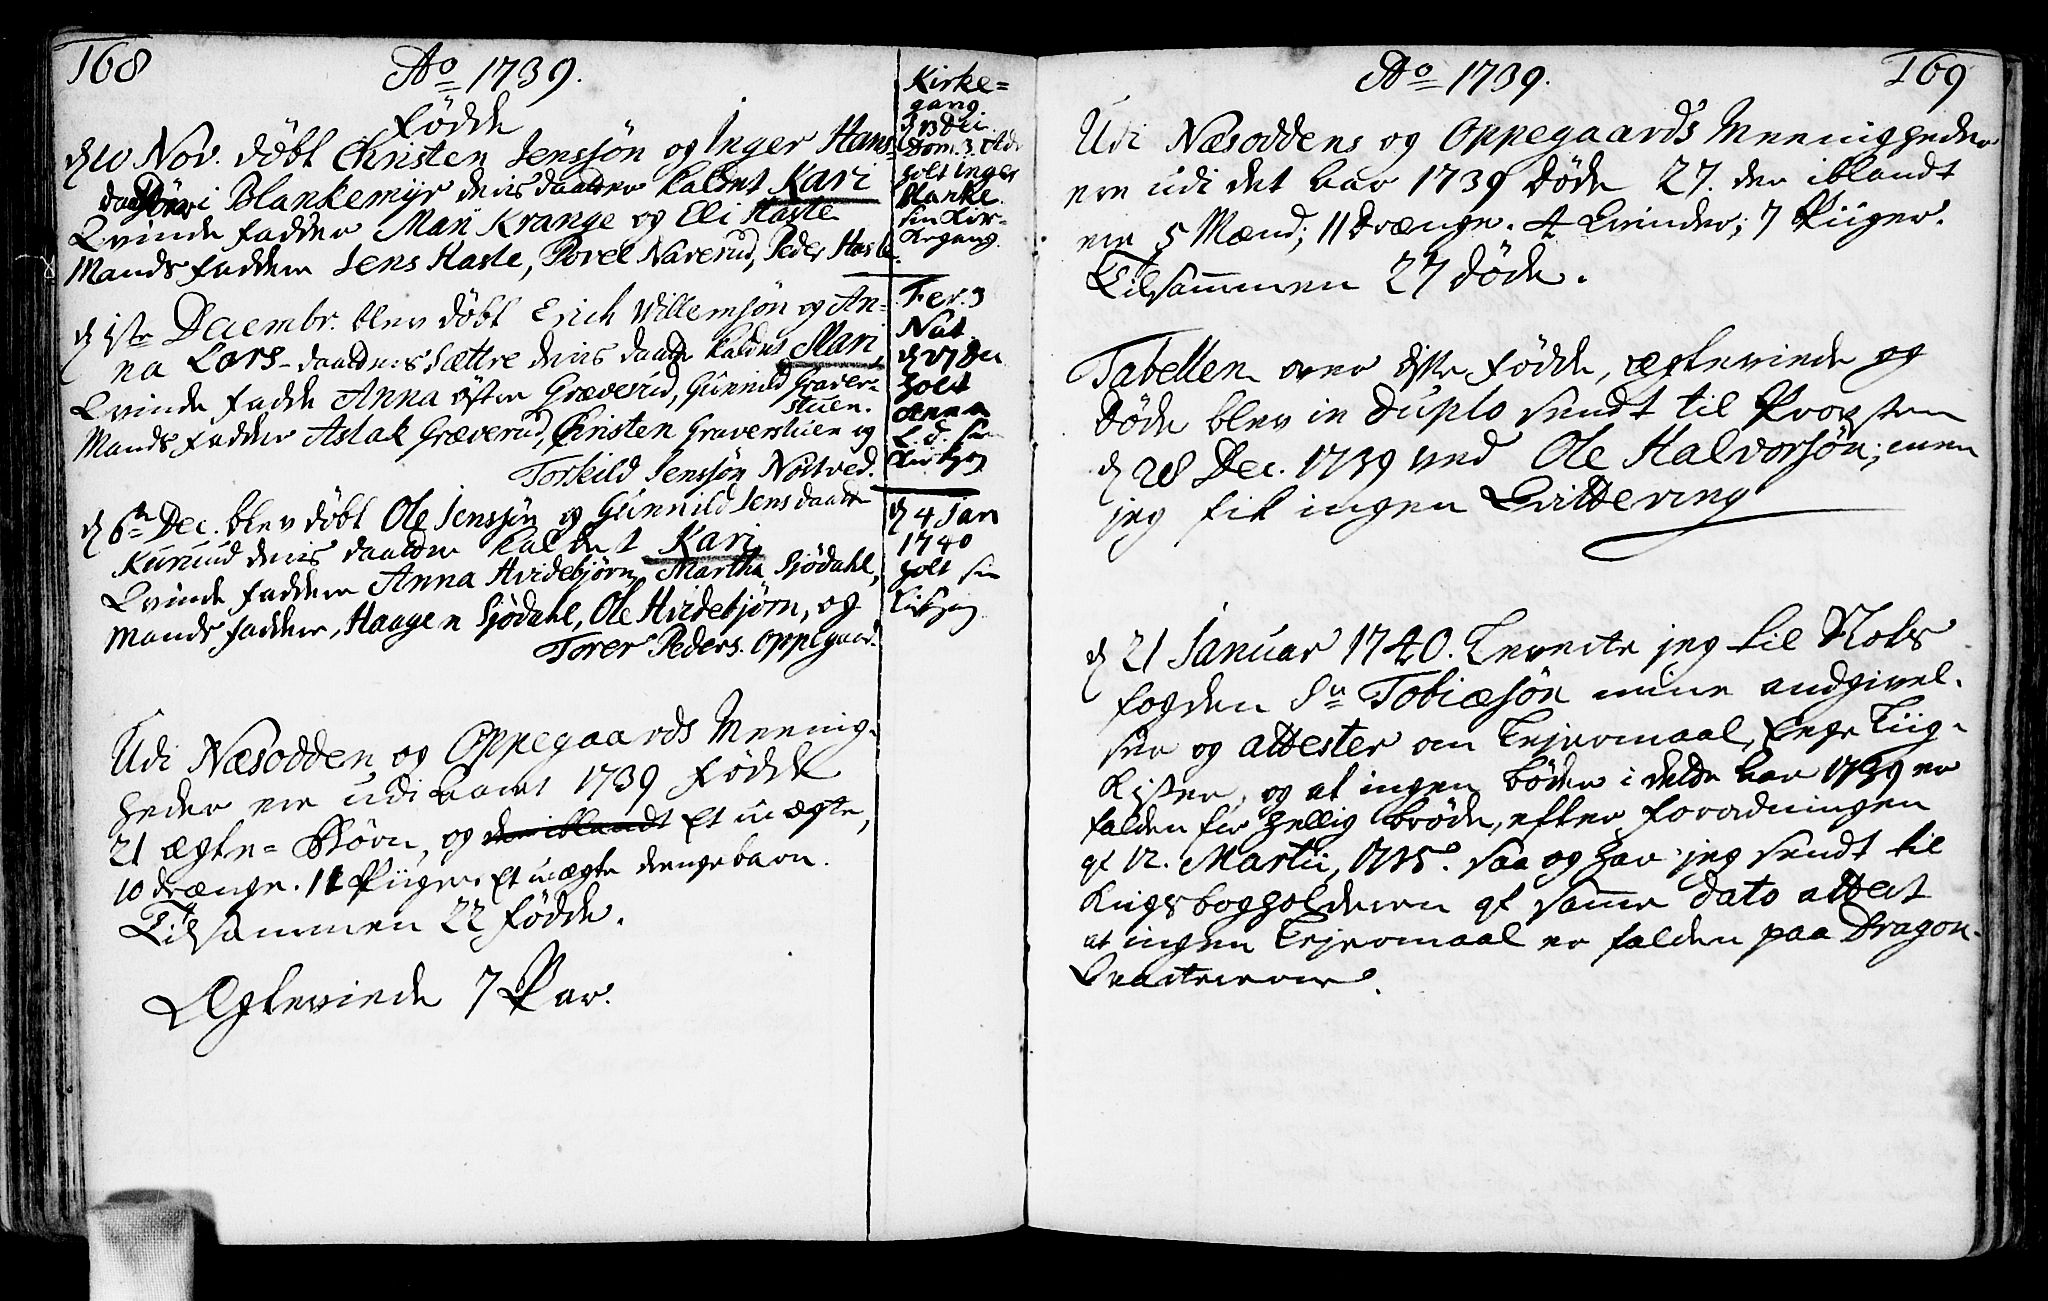 168
Ao 1739.
Födde
d 10 Nov. döbt Christen Jenssön og Inger Hans-
daatter i Blankemyr deris daatter kaldet Kari
Qvinde fadder Mari Krange og Eli Hasle
Mands faddere Jens Hasle, Povel Naverud, Peder Hasle.
d 1ste Decembr. blev döbt Erich Willemsön og An-
na Lars-daatters Sættre deris daatter kaldet Mari
Qvinde fadder Anna östre Græverud, Gunnild Graver-
stuen.
Mands fadder Aslak Græverud, Christen Graverstuen og
Torkild Jenssön Nöitved.
d 6te Dec. blev döbt Ole Jenssön og Gunnild Jens daatter
Kurud deris daatter kaldet Kari
Qvinde faddere Anna Hvidebjörn, Martha Sjödahl,
Mands faddere, Haagen Sjödahl, Ole Hvidebjörn, og
Torer Peders. Oppegaard.
Udi Næsodden og Oppegaards Meenig-
heder ere udi aaret 1739 Födde
21 ægte-Börn, og der iblandt Et uægte,
10 drænge. 11 Piiger. Et uægte drengebarn.
Tilsammen 22 födde.
Ægteviede 7 Par.
Kirke=
gang
Dom. 3. Adv
holt Inger
Blanke.
sin Kir-
kegang.
Fer. 3
Nat
d 27 Dec
holt
Anna
L. d. sin
Kirkgang
d 4 Jan
1740
holt sin
Kirkgang
Ao 1739.
169
Udi Næsoddens og Oppegaards Meenigheder
ere udi det aar 1739 döde 27. der iblandt
ere 5 Mænd; 11 drænge. 4 Qvinder; 7 Piiger.
Tilsammen 27 döde.
Tabellen over disse födde, ægteviede og
döde blev in duplo sendt til Provsten
d 28 Dec. 1739 ved Ole Halvorsön; men
jeg fik ingen Qvittering
d 21 Januar 1740. Leverte jeg til Slots
fogden Sr Tobiæsön mine andgivel-
ser og attester om Lejermaal, Enge Liig-
kister, og at ingen böder i dette aar 1739 er
falden for hellig bröde, efter forordningen
af 12. Martii, 1735. Saa og har jeg sendt til
Krigsbogholderen af samme dato attest
at ingen Lejermaal er falden paa Dragon-
Qvartererne.